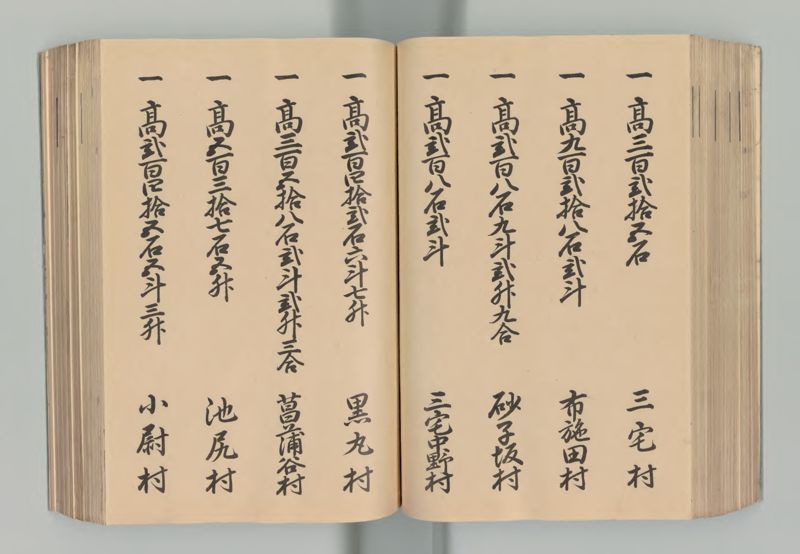 一 高三百弐拾五石 三宅村
一 高九百弐拾八石弐斗 布施田村
一 高弐百八石九斗弐升九合 砂子坂村
一 高弐百八石弐斗 三宅中野村
一 高弐百四拾弐石六斗七升 黒丸村
一 高三百五拾八石弐斗弐升三合 菖蒲谷村
一 高五百三拾七石五升 池尻村
一 高弐百四拾五石五斗三升 小尉村